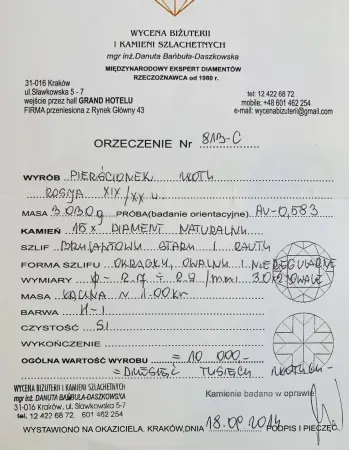 WYCENA BIŻUTERII
I KAMIENI SZLACHETNYCH
mgr inż. Danuta Bańbuła-Daszkowska
MIĘDZYNARODOWY EKSPERT DIAMENTÓW
RZECZOZNAWCA od 1980 r.
31-016 Kraków
ul.Sławkowska 5 - 7
wejście przez hall GRAND HOTELU
FIRMA przeniesiona z Rynek Główny 43
tel: 12 422 68 72
mobile: +48 601 462 254
e-mail: wycenabizuterii@gmail.com
ORZECZENIE Nr 813-C
WYRÓB PIERŚCIONEK ZŁOTY
ROSJA XIX/XX w.
MASA 3.030g PRÓBA(badanie orientacyjne) AU-0,583
KAMIEŃ 15x DIAMENT NATURALNY
SZLIF BRYLANTOWY STARY I RAUTY
FORMA SZLIFU OKRĄGŁY, OWALNY I NIEREGULARNE
WYMIARY ϕ - 2.7 ÷ 2.9 /mm/
MASA ŁĄCZNA ~ 1.00kr
BARWA H-I
CZYSTOŚĆ SI
WYKOŃCZENIE
OGÓLNA WARTOŚĆ WYROBU = 10 000-
= DZIESIĘĆ TYSIĘCY ZŁOTYCH-
WYCENA BIŻUTERII I KAMIENI SZLACHETNYCH
mgr inż. DANUTA BAŃBUŁA-DASZKOWSKA
31-016 Kraków, ul. Sławkowska 5-7
tel. 12 422 68 72 601 462 254
Kamienie badano w oprawie
WYSTAWIONO NA OKAZICIELA. KRAKÓW,DNIA 18.09.2014 PODPIS I PIECZĘĆ